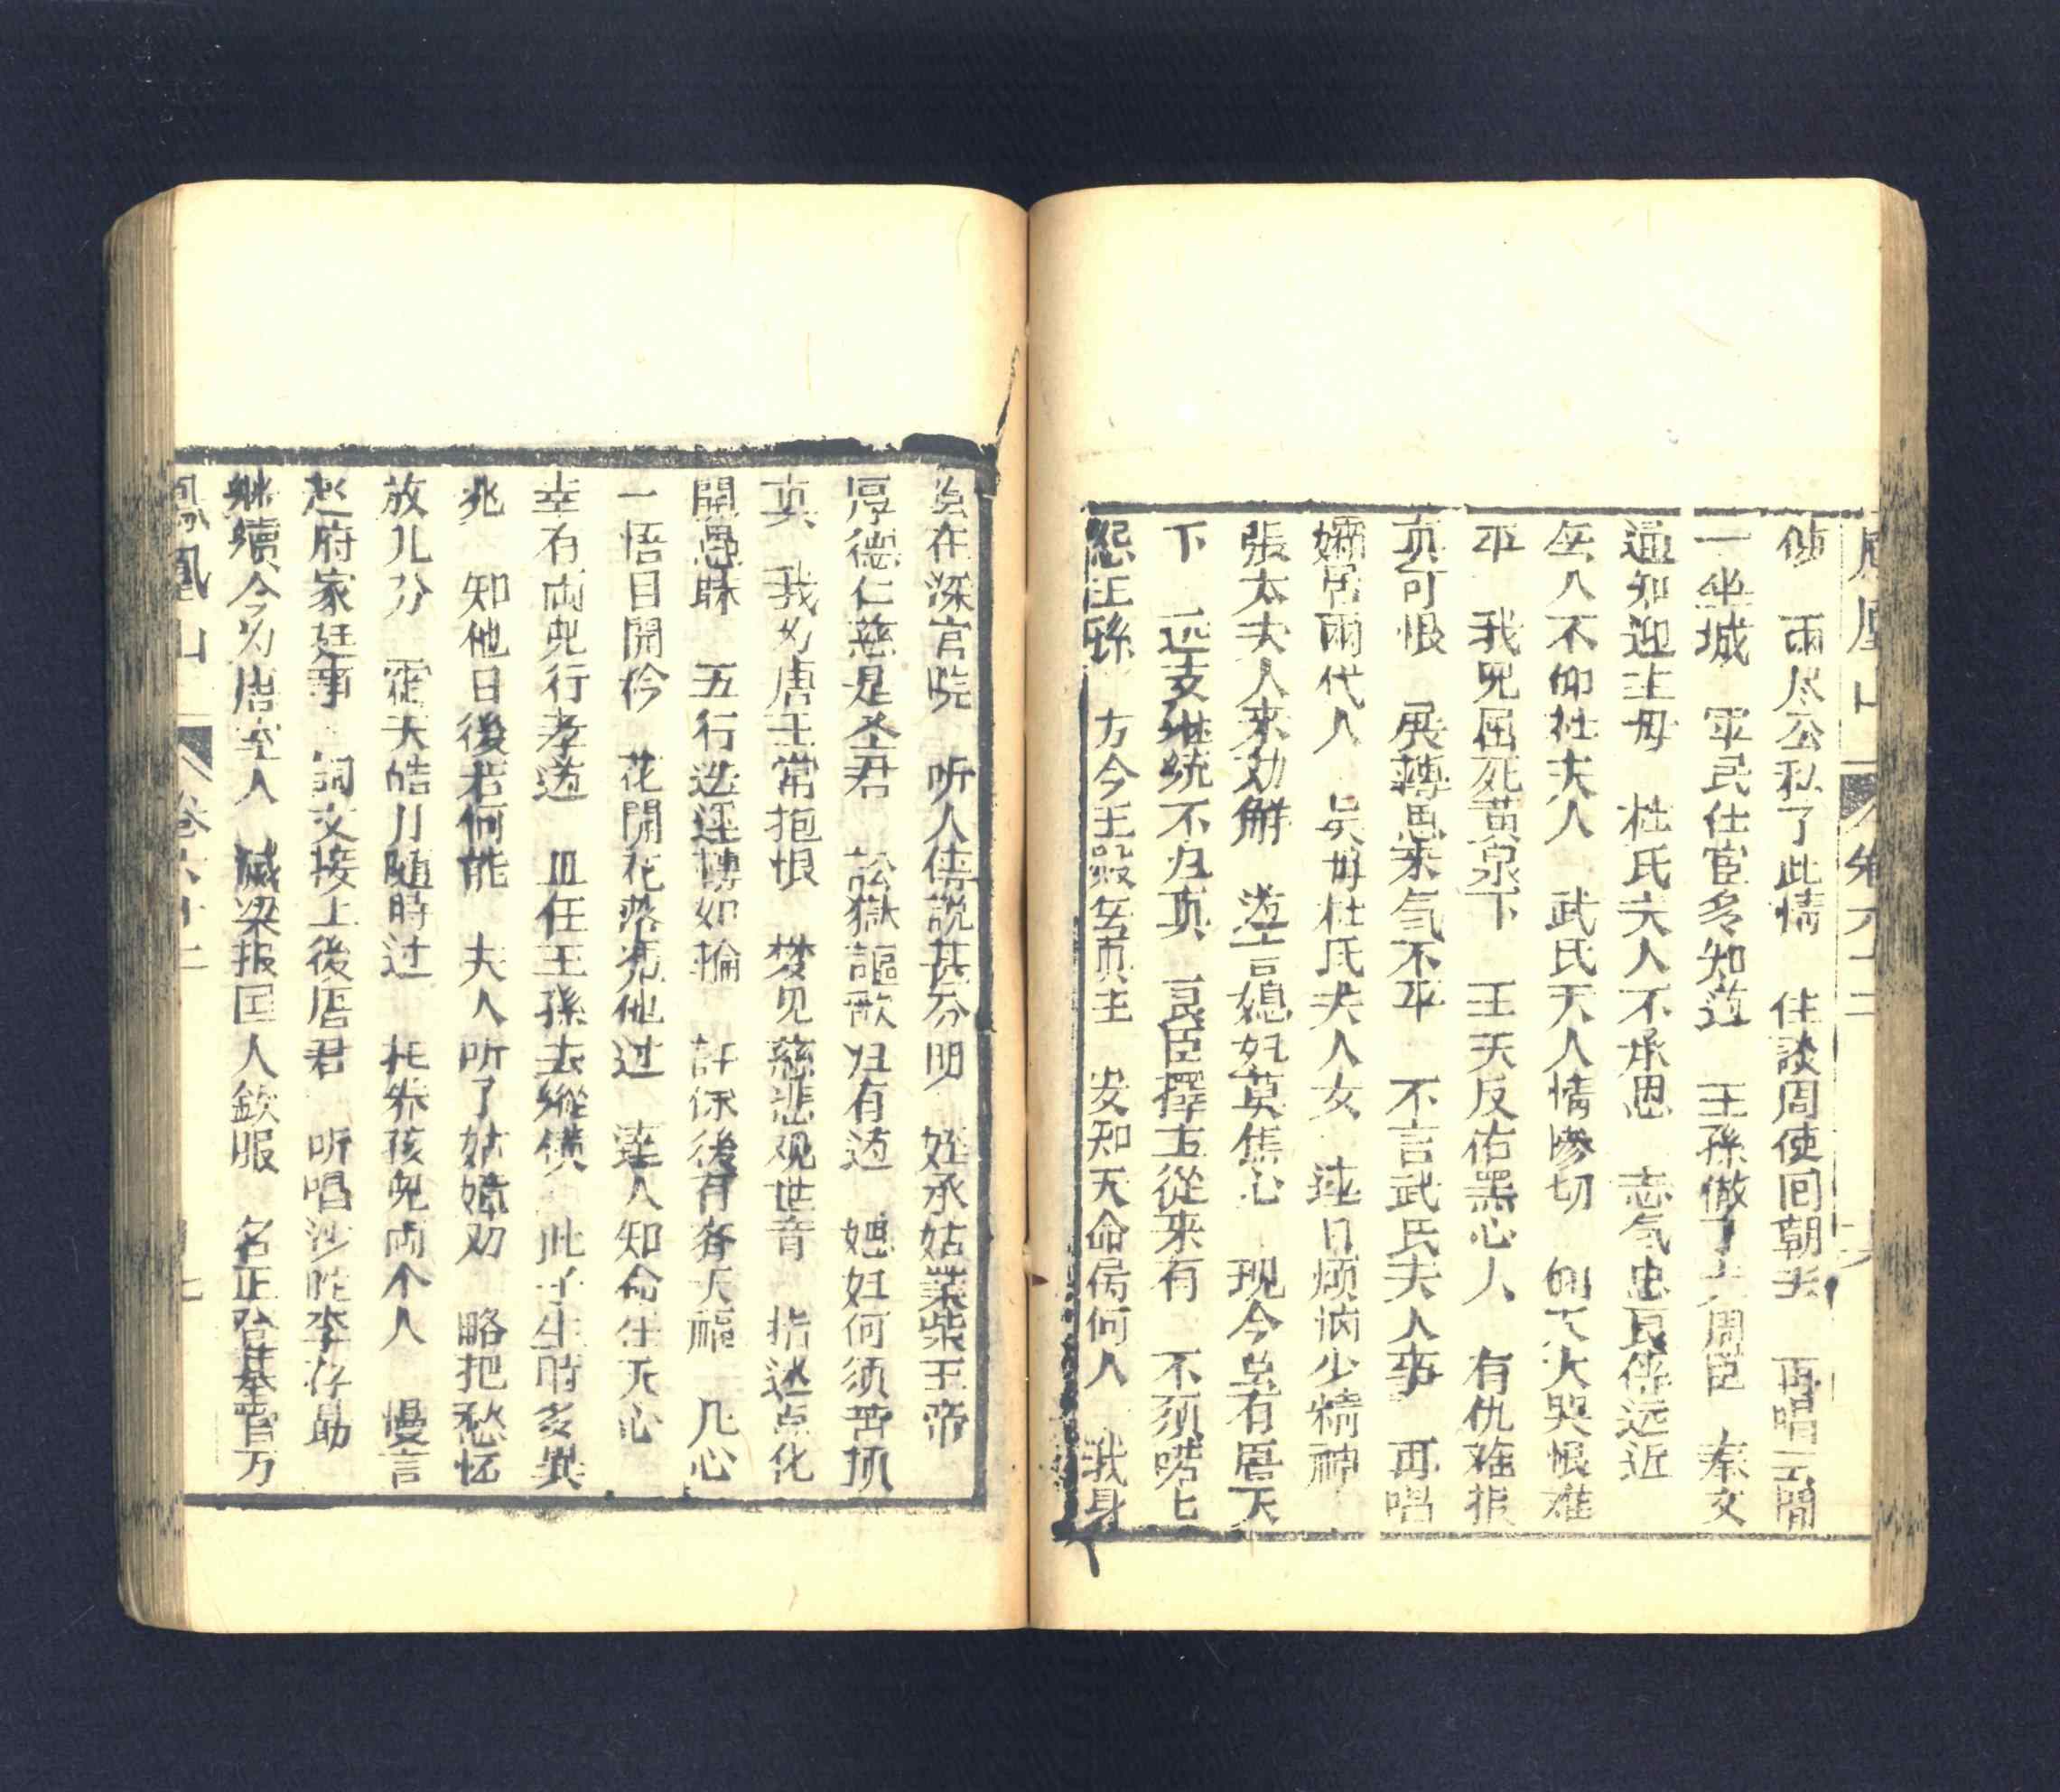 鳳凰山 卷六十二 六
偧 兩尽公私了此情 住談周使回朝去 再唱云間
一坐城 軍民仕宦多知道 王孫做了上周臣 奉文
通知迎主母 杜氏夫人不承恩 志气忠良伴远近
無人不仰杜夫人 武氏夫人情惨切 仰天大哭恨难
平 我兒屈死黄泉下 王天反佑黑心人 有仇难报
真可恨 展轉思来气不平 不言武氏夫人事 再唱
孀居兩代人 吴母杜氏夫人女 連日煩悩少精神
張太夫人來劝觧 道言媳妇莫焦心 現今虽有唐天
下 远支継統不归真 良臣擇主從来有 不須嘮七
怨王孫 方今王政無真主 安知天命属何人 我身
虽在深宫院 听人传説甚分明 姪承姑業柴王帝
厚德仁慈是圣君 訟獄謳歌归有道 媳妇何须苦执
真 我为唐王常抱恨 梦见慈悲观世音 指迷点化
開愚昧 五行迭迋轉如輪 許保後有齐天福 几心
一悟目開矜 花開花落凭他过 達人知命任天心
幸有兩兒行孝道 且任王孫去縱橫 此子生時多異
兆 知他日後若何能 夫人听了姑嫜劝 略把愁怀
放几分 霍夫皓月随時过 托养孩兒兩个人 慢言
赵府家廷事 詞文接上後唐君 听唱沙陀李存勗
継續今为唐室人 滅梁报囯人欽服 名正登基管万
鳳凰山 卷六十二 七